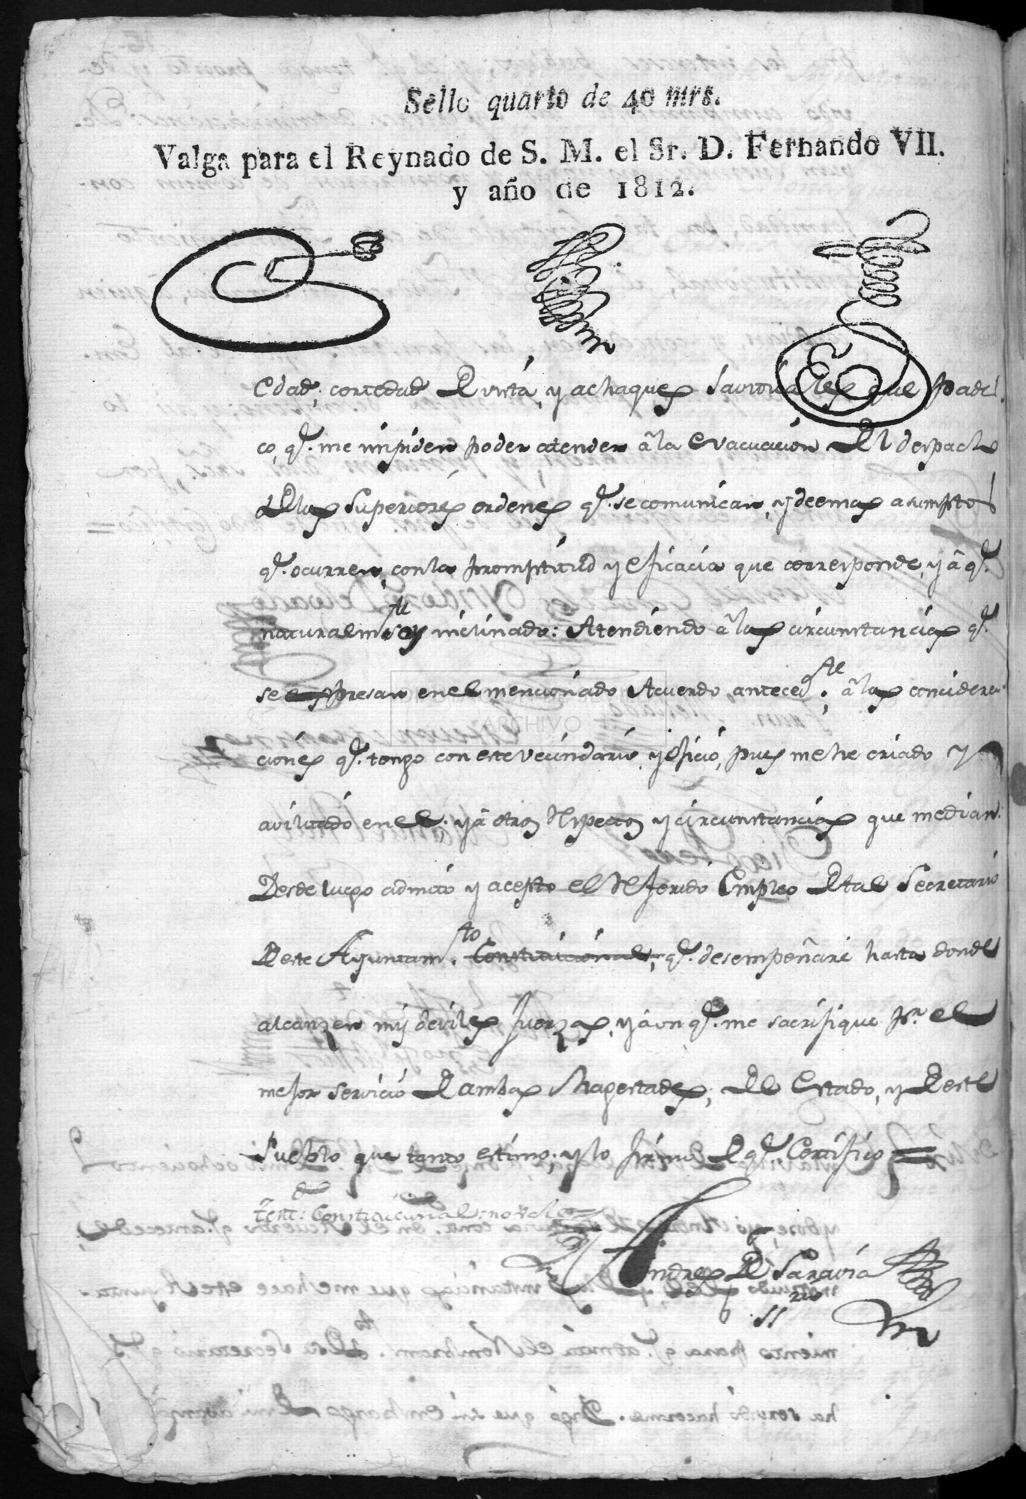 Sello quarto de 40 mrs.
Valga para el Reynado de S. M. el Sr. D. Fernando VII.
y año de 1812.
Edad, cortedad De vista, y achaques havituales que padez
co, qe. me impiden poder atender â la evacuacion Del despacho
De las Superiores ordenes qe. se comunican, y demas asumptos
qe. ocurren, con la promptitud y eficacia que corresponde, y â qe.
naturalmte. soy inclinado: Atendiendo â las circunstancias qe.
se expresan en el mencionado Acuerdo antecedte. â las concidera-
ciones qe. tengo con este vecindario, y oficio, pues me he criado y
avilitado en el, y â otros respectos y circunstancias que median.
Desde luego admito y acepto el referido Empleo De tal Secretario
De este Ayuntamto. Constitucional, qe. desempeñaré hasta donde
alcanzen mis deviles fuerzas, y aun qe. me sacrifique pr. el
mejor servicio De ambas Magestades, Del Estado, y De este
Pueblo que tanto estimo; y lo firmo De qe. Certifico =
Constitucional: no vale =
Andres De Saravia
ARCHIVO